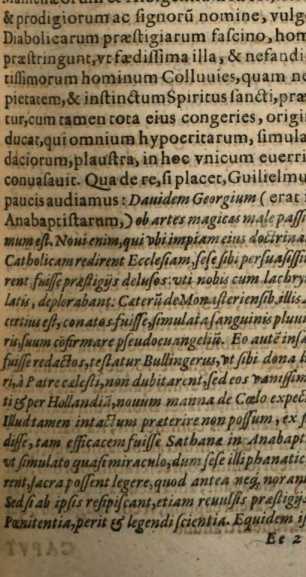 & prodigiorum ac signorũ nomine, vulg
Diabolicarum præstigiarum fascino, hom
præstringunt, vt fœdissima illa, & nefandi
tissimorum hominum Colluuies, quam ne
pietatem, & instinctum Spiritus sancti, præ
tur, cum tamen tota eius congeries, origi
ducat, qui omnium hypocritarum, simula
daciorum, plaustra, in hoc vnicum euerri
conuasauit. Qua de re, si placet, Guilielmu
paucis audiamus: Dauidem Georgium (erat
Anabaptistarum,) ob artes magicas male passi
mum est. Noui enim, qui vbi impiam eius doctrina
Catholicam redirent Ecclesiam, sese sibi persuasissi
rent fuisse præstigijs delusos: vti nobis cum lachry
latis, deplorabant. Caterũ de Monasteriensib. illis
certius est, conatos fuisse, simulata sanguinis pluui
ris, suum cõfirmare pseudoeuangeliũ. Eo autẽ insa
fuisse redactos, testatur Bullingerus, vt sibi dona
ri, à Patre cælesti, non dubitarent, sed eos vanissim
ti & per Hollandiã, nouum manna de Cœlo expec
Illud tamen intactum præterire non possum, ex
disse, tam efficacem fuisse Sathana in Anabapt
vt simulato quasi miraculo, dum sese illi phanatic
rent, sacra possent legere, quod antea neq, noran
Sed si ab ipsis resipiscant, etiam reuulsis præstigij
Pœnitentia, perit & legendi scientia. Equidem
Ee 2